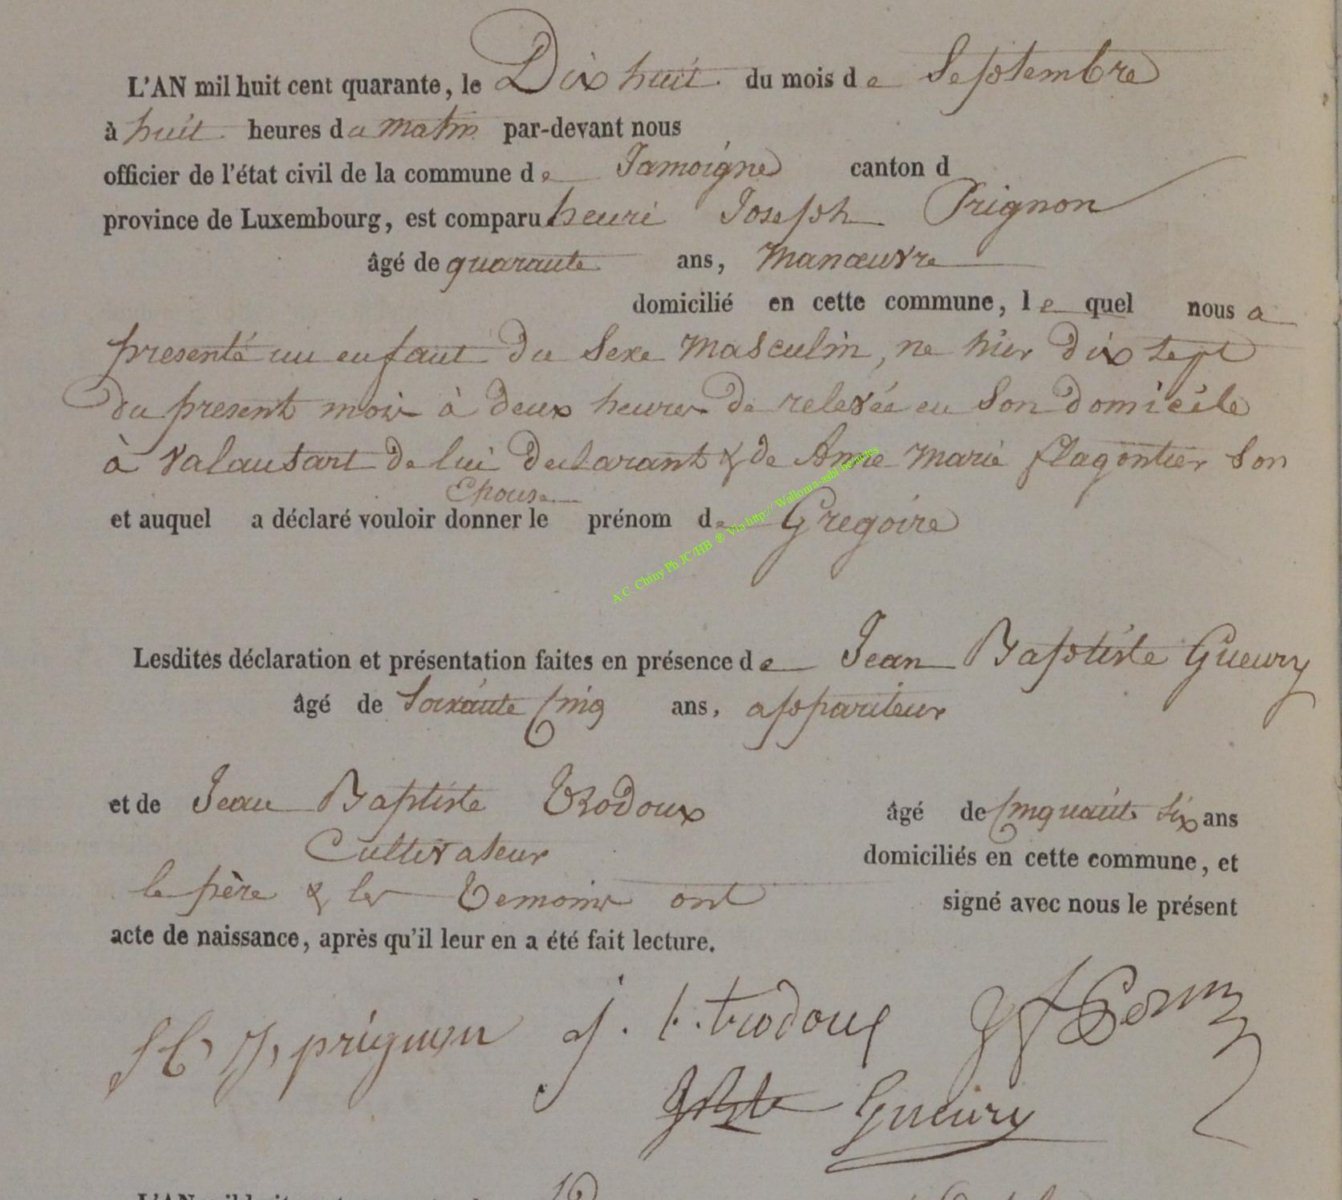 L'AN mil huit cent quarante, le Dix huit du mois de Septembre
à huit heures du matin par-devant nous
officier de l'état civil de la commune de Jamoigne canton d
province de Luxembourg, est comparu henri Joseph Prignon
âgé de quarante ans, manœuvre
domicilié en cette commune, le quel nous a
presenté un enfant du sexe masculin, né hier dix sept
du present mois à deux heures de relevée en son domicile
à Valansart de lui declarant & de Anne Marie flagontier son
Epouse
et auquel a déclaré vouloir donner le prénom de Gregoire
A.C. Chiny Ph JC/HB ® Via http://
Lesdites déclaration et présentation faites en présence de Jean Baptiste Guewry
âgé de soixante cinq ans, appariteur
et de Jean Baptiste Trodoux âgé de cinquante six ans
Cultivateur
domiciliés en cette commune, et
le père & les temoins ont signé avec nous le présent
acte de naissance, après qu'il leur en a été fait lecture.
H J, prignon j. t. trodoux
Guewry
L'AN mil huit cent